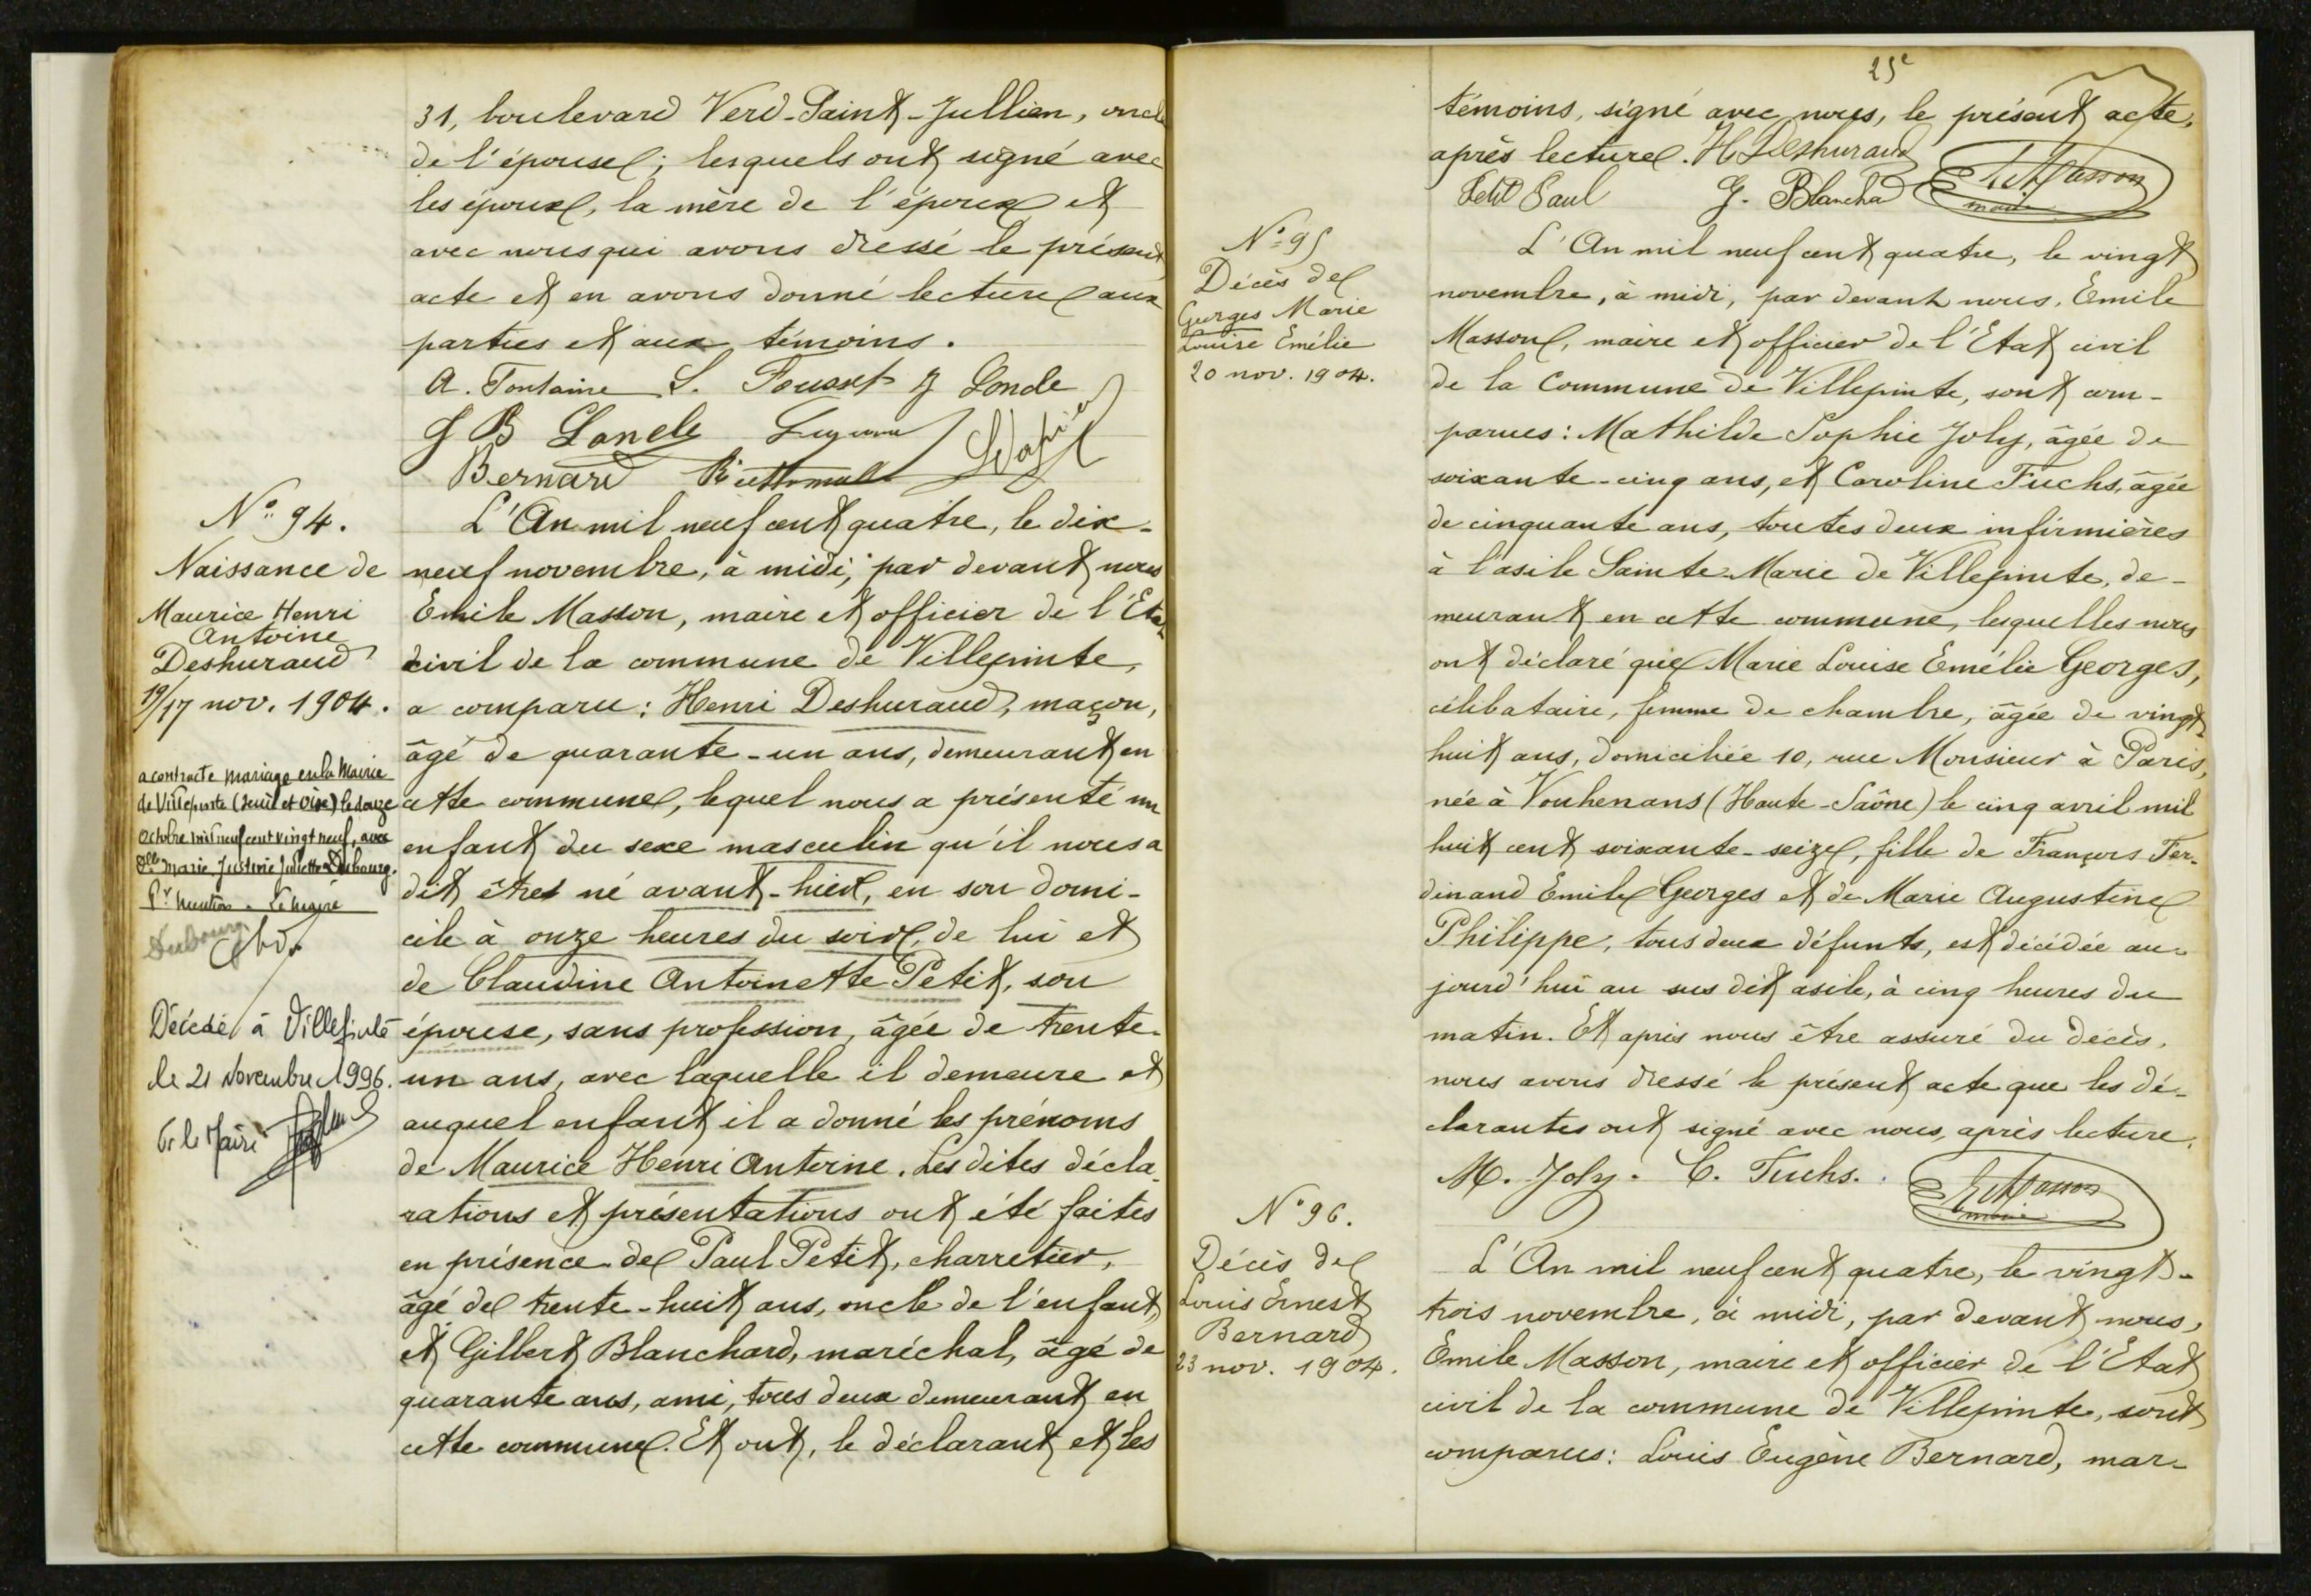 31, boulevard Verd-Saint-Jullien, oncle
de l'épouse; lesquels ont signé avec
les époux, la mère de l'époux et
avec nous qui avons dressé le présent
acte et en avons donné lecture aux
parties et aux témoins.
A. Fontaine L. Pousset J Londe
J B Lande
Bernard
No 94.
Naissance de
Maurice Henri
Antoine
Deshuraud
19/17 nov. 1904.
a contracté mariage en la Mairie
de Villepinte (Seine et Oise) le douze
Octobre mil neuf cent vingt neuf, avec
Dlle Marie Justine Juliette Dubourg.
Pr mention. Le Maire
Dubourg
Décédé à Villepinte
le 21 Novembre 1996.
Pr le Maire
L'An mil neuf cent quatre, le dix-
neuf novembre, à midi, par devant nous
Emile Masson, maire et officier de l'Etat
civil de la commune de Villepinte,
a comparu: Henri Deshuraud, maçon,
âgé de quarante-un ans, demeurant en
cette commune, lequel nous a présenté un
enfant du sexe masculin qu'il nous a
dit être né avant-hier, en son domi-
cile à onze heures du soir, de lui et
de Claudine Antoinette Petit, son
épouse, sans profession, âgée de trente-
un ans, avec laquelle il demeure et
auquel enfant il a donné les prénoms
de Maurice Henri Antoine. Les dites décla-
rations et présentations ont été faites
en présence de Paul Petit, charretier,
âgé de trente-huit ans, oncle de l'enfant,
et Gilbert Blanchard, maréchal, âgé de
quarante ans, ami, tous deux demeurant en
cette commune. Et ont, le déclarant et les
25
témoins, signé avec nous, le présent acte,
après lecture. H Deshuraud
Petit Paul G. Blanchard E Masson
maire
No 95
Décès de
Georges Marie
Louise Emélie
20 nov. 1904.
L'An mil neuf cent quatre, le vingt
novembre, à midi, par devant nous, Emile
Masson, maire et officier de l'Etat civil
de la Commune de Villepinte, sont com-
parues: Mathilde Sophie Joly, âgée de
soixante-cinq ans, et Caroline Fuchs, âgée
de cinquante ans, toutes deux infirmières
à l'asile Sainte-Marie de Villepinte, de-
meurant en cette commune, lesquelles nous
ont déclaré que Marie Louise Emélie Georges,
célibataire, femme de chambre, âgée de vingt
huit ans, domiciliée 10, rue Monsieur à Paris,
née à Vouhenans (Haute-Saône) le cinq avril mil
huit cent soixante-seize, fille de François Fer-
dinand Emile Georges et de Marie Augustine
Philippe, tous deux défunts, est décédée au-
jourd'hui au sus dit asile, à cinq heures du
matin. Et après nous être assuré du décès,
nous avons dressé le présent acte que les dé-
clarantes ont signé avec nous, après lecture.
M. Joly. C. Fuchs. E Masson
maire
No 96.
Décès de
Louis Ernest
Bernard
23 nov. 1904.
L'An mil neuf cent quatre, le vingt-
trois novembre, à midi, par devant nous,
Emile Masson, maire et officier de l'Etat
civil de la commune de Villepinte, sont
comparus: Louis Eugène Bernard, mar-